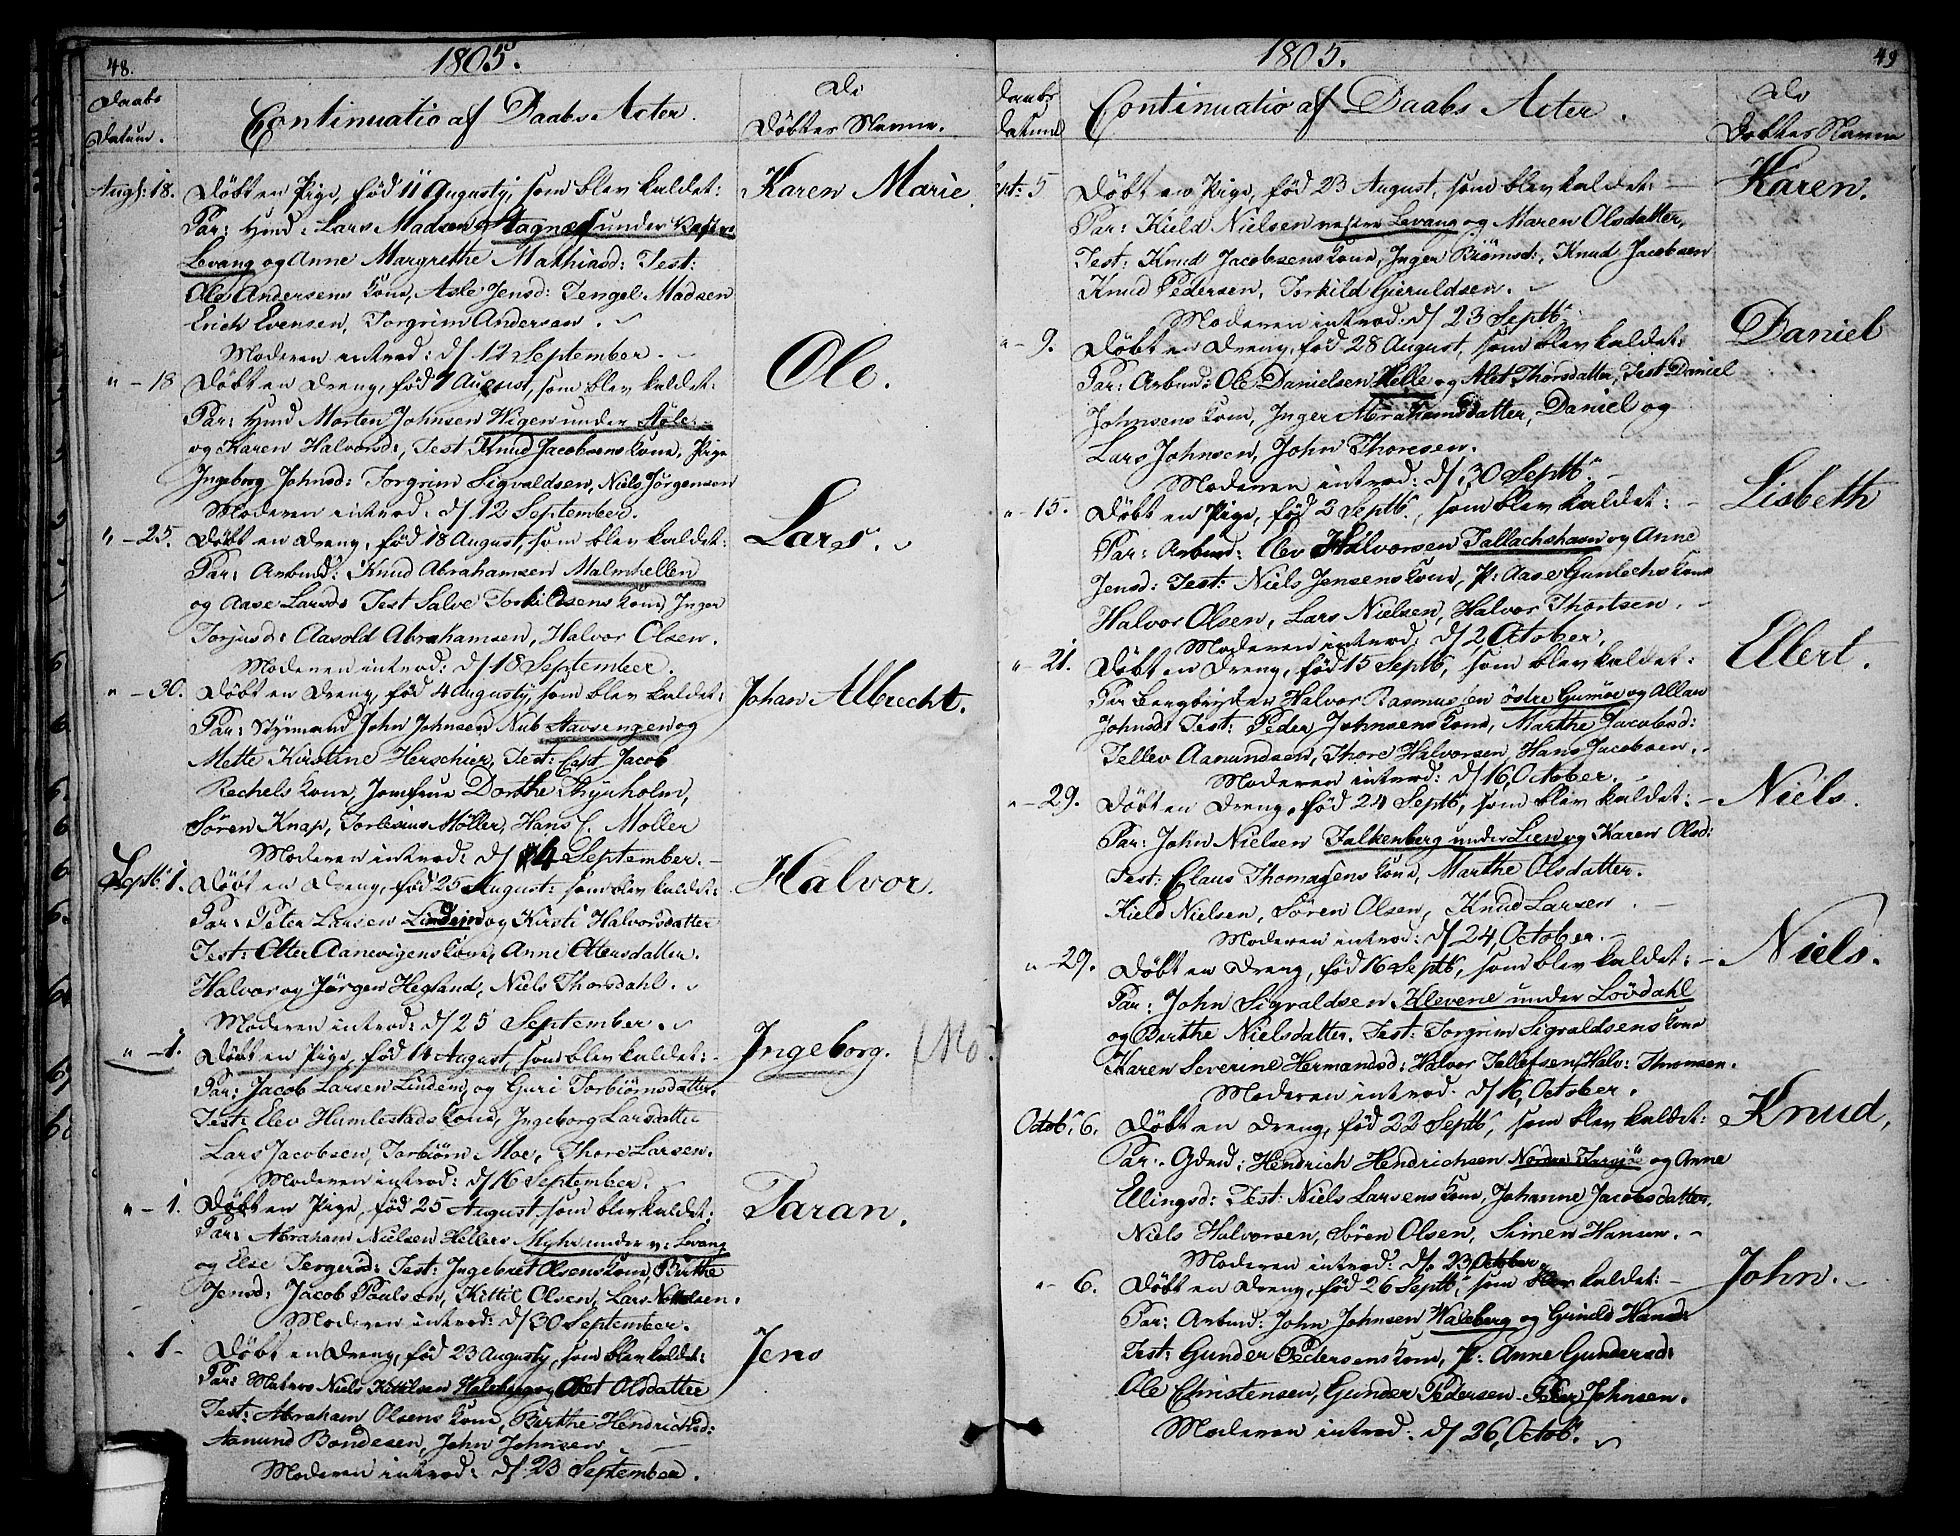 48.
1805.
Daabs
Datum.
Continuatio af Daabs Acter.
De
Döbtes Navne.
Augs: 18. Döbt en Pige, föd 11 Augusty, som blev kaldet: Karen Marie.
Par: Hmd: Lars Madsen Stagnæs under Vestre
Levang og Anne Margrethe Mathiasd: Test:
Ole Andersens kone, Asle Jensd: Tengel Madsen
Erich Evensen, Torgrim Andersen.
Moderen introd: d/ 12 September.
" - 18 Döbt en Dreng, föd 7 August, som blev kaldet: Ole.
Par: Hmd Morten Johnsen Wigen under Støle
og Karen Halvorsd:, Test Knud Jacobsens kone, Pige
Ingeborg Johnsd: Torgrim Sigvaldsen, Niels Jörgensen
Moderen introd: d/ 12 September.
" - 25. Döbt en Dreng, föd 18 August, som blev kaldet: Lars.
Par: Arbmd: Knud Abrahamsen Malmhellen
og Aase Larsd: Test Salve Torkildsens kone, Inger
Torjusd: Aasold Abrahamsen, Halvor Olsen.
Moderen introd: d/ 18 September.
" - 30. Döbt en Dreng, föd 4 Augusty, som blev kaldet: Johan Albrecht.
Par: Styrmand John Johnsen Nub Stavsengen og
Mette Kirstine Herschier, Test: Capt Jacob
Rechels kone, Jomfrue Dorthe Thyrholm,
Sören Knap, Möller, Hans C. Möller
Moderen introd: d/ 14 September.
Septb: 1. Döbt en Dreng, föd 25 August: som blev kaldet: Halvor.
Par: Peter Larsen Lindem og Kirsti Halvorsdatter
Test: Otter Aanevigens kone, Anne Ottersdatter.
Halvor og Jørgen Hegland, Niels Thorsdahl.
Moderen introd: d/ 25 September.
" - 1. Döbt en Pige, föd 14 August, som blev kaldet: Ingeborg.
Par: Jacob Larsen Lindem, og Guri Torbiörnsdatter.
Test: Elev Humlestads kone, Ingeborg Larsdatter
Lars Jacobsen, Torbiörn Moe, Thore Larsen.
Moderen introd: d/ 16 September.
" - 1. Döbt en Pige, föd 25 August, som blev kaldet: Taran.
Par: Abraham Nielsen Hellers Myhr under v: Levang
og Else Tergersd: Test: Ingebret Olsens kone, Birthe
Jensd: Jacob Paulsen, Kittil Olsen, Lars Nielsen.
Moderen introd: d/ 30 September.
" 1 - Döbt en Dreng, föd 23 Augusty, som blev kaldet: Jens
Par: Matros Niels Kittilsen Haleberg og Olet Olsdatter
Test: Abraham Olsens kone, Birthe Hendrichsd:
Aamund Bondesen, John Johnsen
Moderen introd: d/ 23 September.
49
1805.
Daabs
Datum
Continuatio af Daabs Acter.
De
Döbtes Navne
pt: 5 Döbt en Pige, föd 23 August, som blev kaldet: Karen.
Par: Kield Nielsen vestre Levang og Maren Olsdatter,
Test: Knud Jacobsens kone, Inger Biömsd:, Knud Jacobsen
Knud Pedersen, Torkild Gieruldsen.
Moderen introd: d/ 23 Septb.
" - 9. Döbt en Dreng, föd 28 August, som blev kaldet: Daniel
Par: Arbmd: Ole Danielsen Helle og Alet Thorsdatter, Test: Daniel
Johnsens kone, Inger Abrahamsdatter, Daniel og
Lars Johnsen, John Thoresen.
Moderen introd: d/ 30 Septb.
" - 15. Döbt en Pige, föd 2 Septb., som blev kaldet: Lisbeth
Par: Arbmd: Elev Halvorsen Tallachshavn og Anne
Jensd: Test: Niels Jensens kone, P: Aase Gunlechs kone
Halvor Olsen, Lars Nielsen, Halvor Thortsen.
Moderen introd: d/ 2 October.
" - 21. Döbt en Dreng, föd 15 Septb, som blev kaldet: Ellert.
Par Bergbryder Halvor Rasmussen östre Gumöe og Allan
Johnsd: Test: Peder Johnsens kone, Marthe Jacobsd:
Tellev Aamundsen, Thore Halvorsen, Hans Jacobsen.
Moderen introd: d/ 16, October.
" - 29. Döbt en Dreng, föd 24 Septb, som blev kaldet: Niels.
Par: John Nielsen Falkenberg under Lien og Karen Olsd:
Test: Claus Thomasens kone, Marthe Olsdatter.
Kield Nielsen, Sören Olsen, Knud Larsen.
Moderen introd: d/ 24, October.
" - 29. Döbt en Dreng, föd 16 Septb, som blev kaldet: Niels.
Par: John Sigvaldsen Klevene under Lövdahl
og Birthe Nielsdatter. Test: Torgrim Sigvaldsens kone
Karen Severine Hermansd: Halvor Tellefsen, Halv: Thomsen.
Moderen introd. d/ 16, October.
Octob: 6. Döbt en Dreng, föd 22 Septb, som blev kaldet: Knud,
Par: Gdmd: Hendrich Hendrichsen Nordre og Anne
Ellingsd: Test: Niels Larsens kone, Johanne Jacobsdatter.
Niels Halvorsen, Sören Olsen, Simen Hansen.
Moderen introd: d/. 23 October.
" 6. Döbt en Dreng, föd 26 Septb, som blev kaldet: John.
Par: Arbmd: John Johnsen Waleberg og Gunild Hansd:
Test: Gunder Pedersens kone, P: Anne Gundersd:
Ole Christensen, Gunder Pedersen Peder Johnsen.
Moderen introd: d/ 26, Octob.